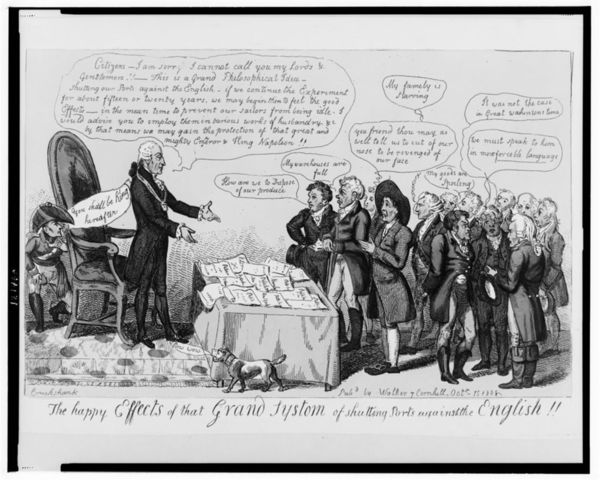 Citizens — I am sorry I cannot call you my Lords &
Gentlemen!! — This is a Grand Philosophical Idea —
shutting our Ports against the English — if we continue the Experiment
for about fifteen or twenty years, we may begin then to feel the good
Effects — in the mean time to prevent our sailors from being idle — I
would advise you to employ them in various works of husbandry &c
by that means we may gain the protection of that great and
mighty Emperor & King Napoleon!!
you shall be King
hereafter
How are we to Dispose
of our produce
My warehouses are
full
My famely is
Starving
you friend thou may as
well tell us to cut of our
nose to be revenged of
our face
My goods are
Spoiling
It was not the case
in Great washintons time
We must speak to him
in more forcible language
Cruikshank
Pubd by Walker 7 Cornhill Octr 15 1808
The happy Effects of that Grand System of shutting Ports against the English!!